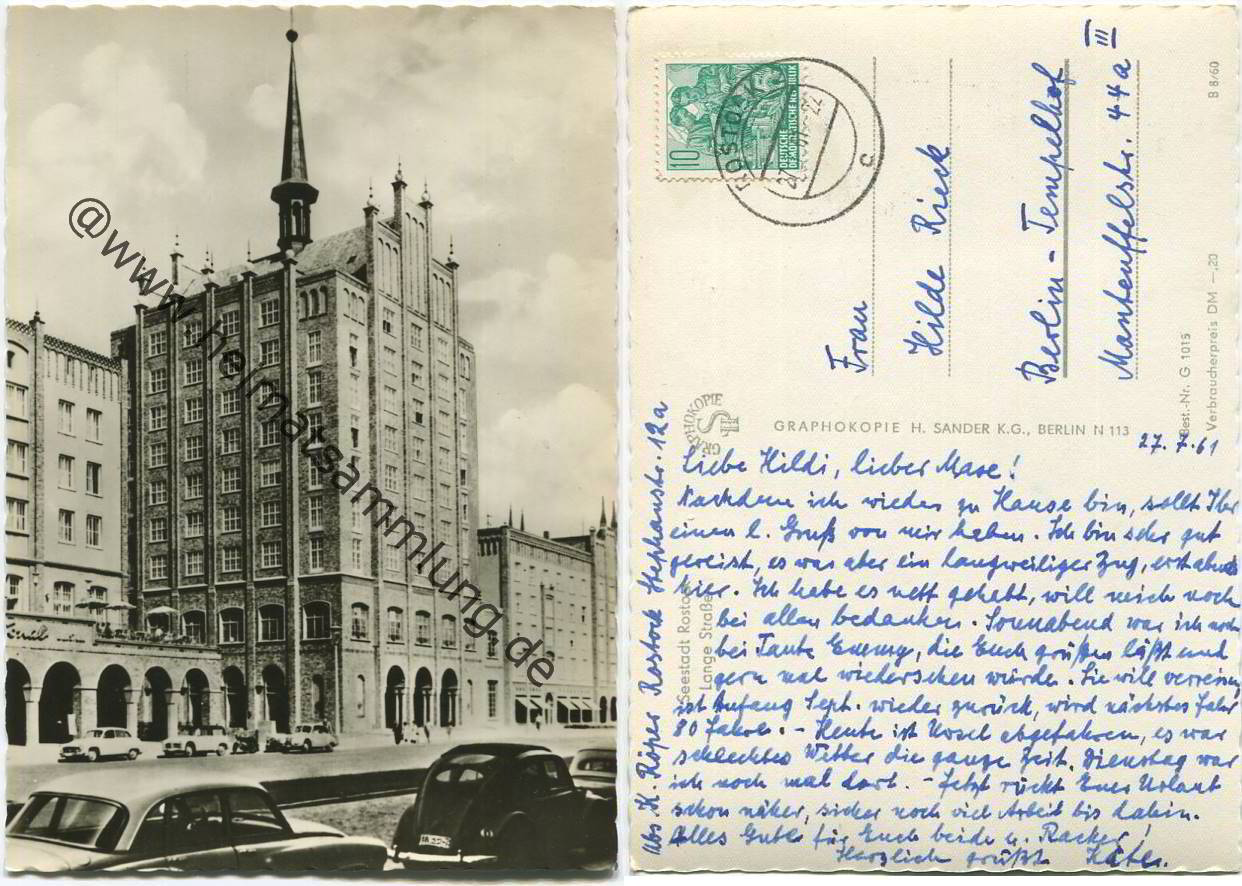 @www.heimatsammlung.de
10
DEUTSCHE
DEMOKRATISCHE REPUBLIK
ROSTOCK
c
III
Frau
Hilde Rieck
Berlin - Tempelhof
Manteuffelstr. 44a
B 8/60
Best.-Nr. G 1015
Verbraucherpreis DM —,20
GRAPHOKOPIE
GRAPHOKOPIE H. SANDER K.G., BERLIN N 113
Seestadt Rostock
Lange Straße
Abs. K. Röper Rostock Stephanstr. 12a
27.7.61
Liebe Hildi, lieber Maxe!
Nachdem ich wieder zu Hause bin, sollt Ihr
einen l. Gruß von mir haben. Ich bin sehr gut
gereist, es war aber ein langweiliger Zug, erst abends
hier. Ich habe es nett gehabt, will mich noch
bei allen bedanken. Sonnabend war ich noch
bei Tante Emmy, die Euch grüßen läßt und
gern mal wiedersehen würde. Sie will verreisen,
ist Anfang Sept. wieder zurück, wird nächstes Jahr
80 Jahre. - Heute ist abgefahren, es war
schlechtes Wetter die ganze Zeit. Dienstag war
ich noch mal dort. - Jetzt rückt Euer Urlaub
schon näher, sicher noch viel Arbeit bis dahin.
Alles Gute für Euch beide u. Racker!
Herzlich grüßt Käthe.